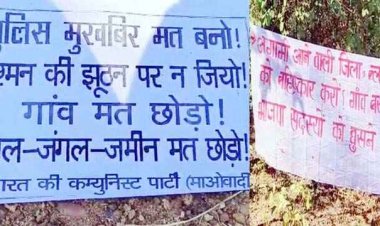 पुलिस मुखबिर मत बनो!
दुश्मन की झूठन पर न जियो!
गांव मत छोड़ो!
जल–जंगल–जमीन मत छोड़ो!
भारत की कम्युनिस्ट पार्टी (माओवादी)
आने वाली जिला
का बहिष्कार करो। गांव
भाजपा सदस्यों को घुसने